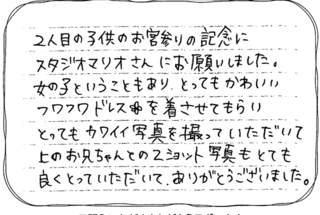 2人目の子供のお宮参りの記念に
スタジオマリオさんにお願いしました。
女の子ということもあり、とってもかわいい
フワフワドレス✿を着させてもらい
とってもカワイイ写真を撮っていただいて
上のお兄ちゃんとの2ショット写真もとても
良くとっていただいて、ありがとうございました。